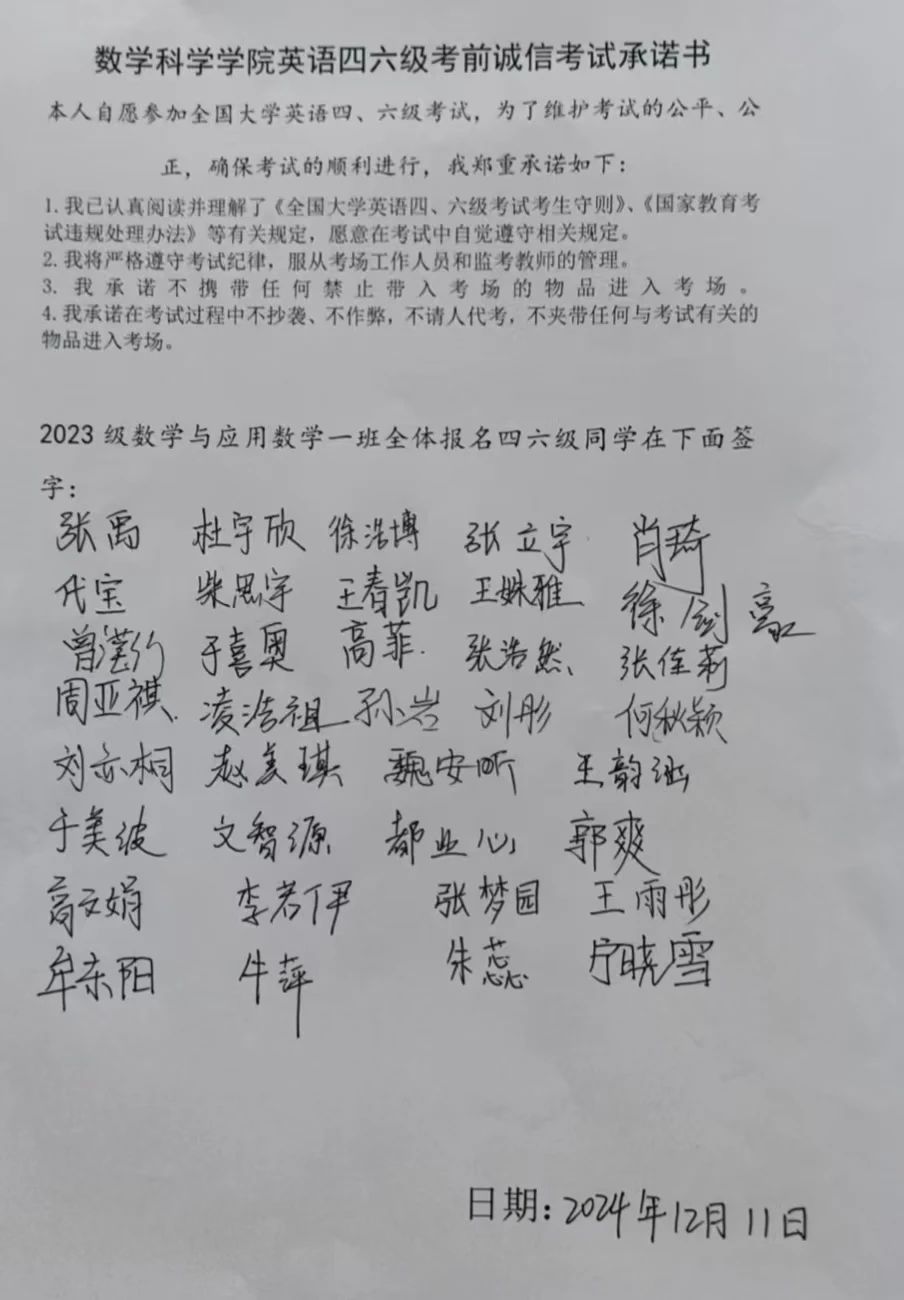 数学科学学院英语四六级考前诚信考试承诺书
本人自愿参加全国大学英语四、六级考试，为了维护考试的公平、公
正，确保考试的顺利进行，我郑重承诺如下：
1. 我已认真阅读并理解了《全国大学英语四、六级考试考生守则》、《国家教育考
试违规处理办法》等有关规定，愿意在考试中自觉遵守相关规定。
2. 我将严格遵守考试纪律，服从考场工作人员和监考教师的管理。
3. 我承诺不携带任何禁止带入考场的物品进入考场。
4. 我承诺在考试过程中不抄袭、不作弊，不请人代考，不夹带任何与考试有关的
物品进入考场。
2023 级数学与应用数学一班全体报名四六级同学在下面签
字：
张禹 杜宇欣 徐浩博 张立宇 肖琦
代宝 柴思宇 王春凯 王姝雅 徐剑
于喜奥 高菲 张浩然 张佳莉
周亚祺 凌浩祖 孙岩 刘彤 何秋颖
刘亦桐 赵美琪 魏安昕 王韵
于美波 文智源 都业心 郭爽
高文娟 李若伊 张梦园 王雨彤
牟东阳 牛萍 朱蕊 宁晓雪
日期：2024年12月11日